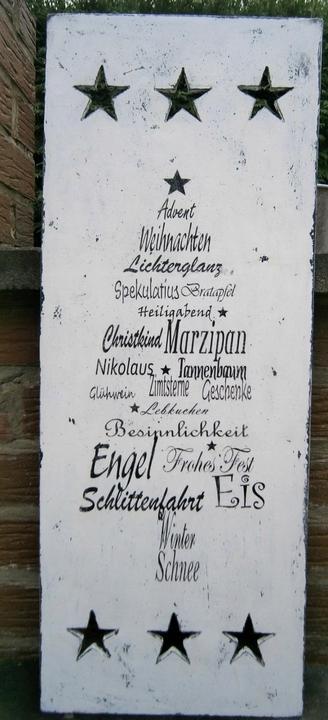 Advent
Weihnachten
Lichterglanz
Spekulatius Bratapfel
Heiligabend
Christkind Marzipan
Nikolaus Tannenbaum
Glühwein Zimtsterne Geschenke
Lebkuchen
Besinnlichkeit
Engel Frohes Fest
Schlittenfahrt Eis
Winter
Schnee